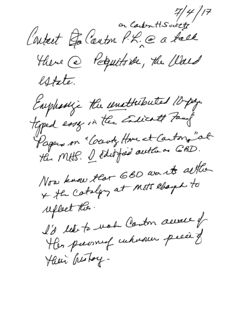 7/4/17
on Gordon H Sweets
Contact Canton P.L. @ a talk
there @ Pequitside, the Ward
estate.
Emphasize the unattributed 10-page
typed essay in the Endicott Family
Papers on "County Home at Canton," at
the MHS. I identified author as GBD.
Now know that GBD was its author
& the catalog at MHS changed to
reflect this.
I'd like to make Canton aware of
this previously unknown piece of
their history.